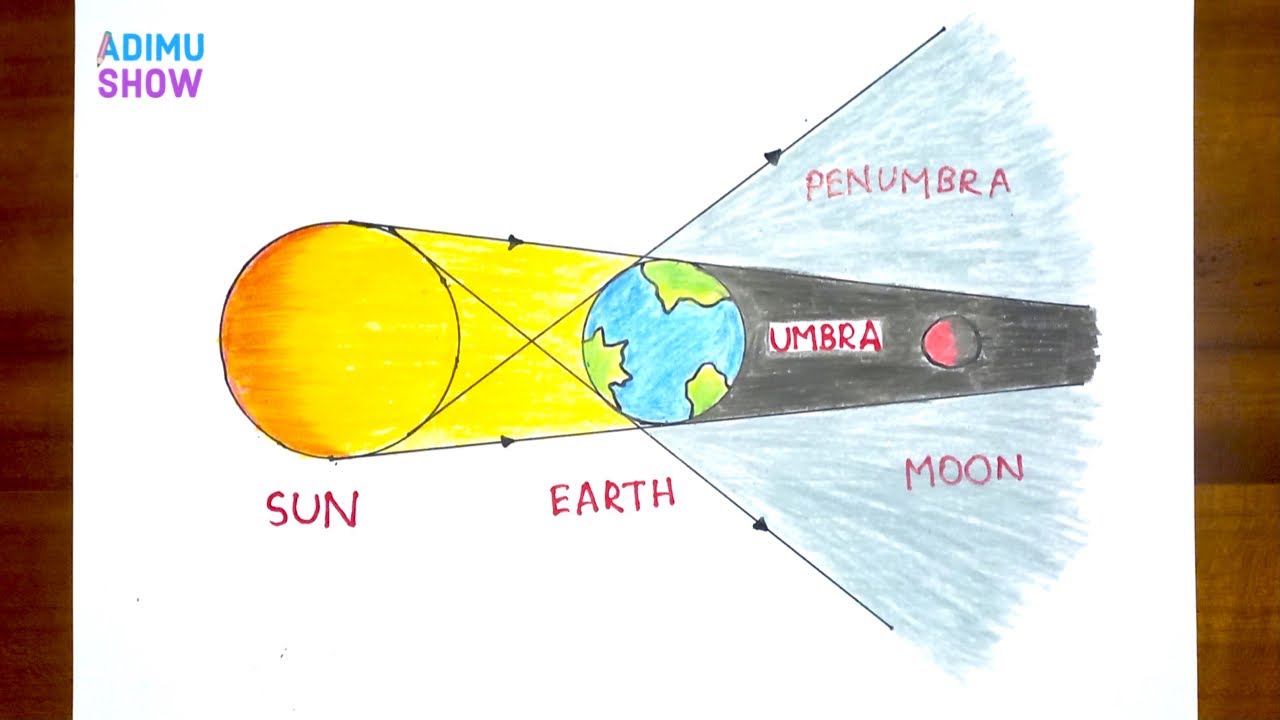 ADIMU
SHOW
PENUMBRA
UMBRA
MOON
EARTH
SUN